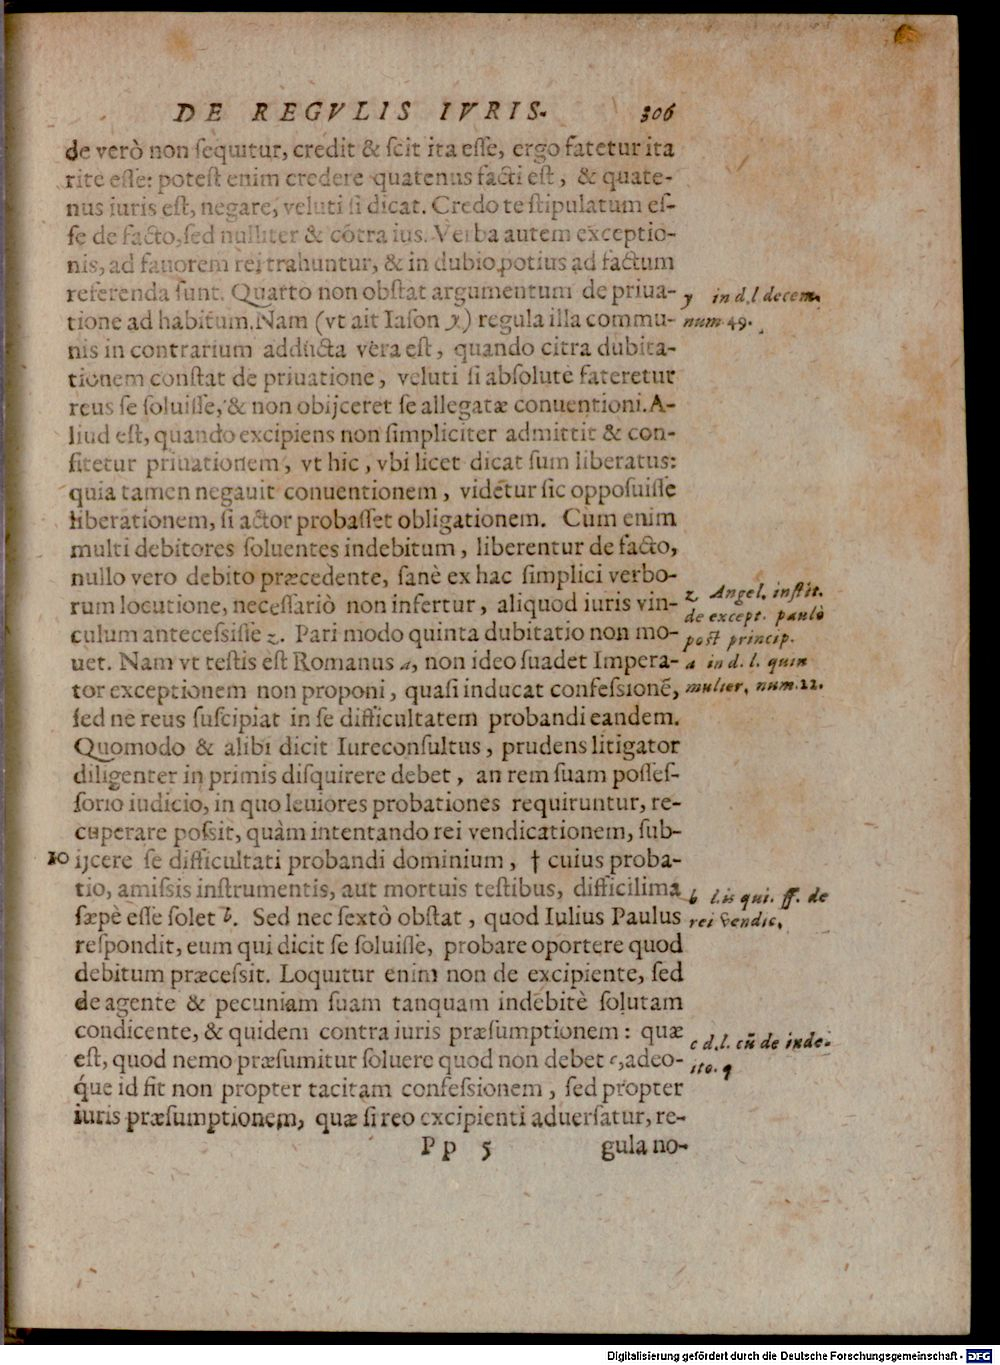 DE REGVLIS IVRIS. 306
de verò non ſequitur, credit & ſcit ita eſſe, ergo fatetur ita
rite eſſe: poteſt enim credere quatenus facti eſt, & quate-
nus iuris eſt, negare, veluti ſi dicat. Credo te ſtipulatum eſ-
ſe de facto, ſed nulliter & cōtra ius. Verba autem exceptio-
nis, ad fauorem rei trahuntur, & in dubio potius ad factum
referenda ſunt. Quarto non obſtat argumentum de priua-
tione ad habitum. Nam (vt ait Iaſon y) regula illa commu-
nis in contrarium adducta vera eſt, quando citra dubita-
tionem conſtat de priuatione, veluti ſi abſolutè fateretur
reus ſe ſoluiſſe, & non obijceret ſe allegatæ conuentioni. A-
liud eſt, quando excipiens non ſimpliciter admittit & con-
fitetur priuationem, vt hic, vbi licet dicat ſum liberatus:
quia tamen negauit conuentionem, videtur ſic oppoſuiſſe
liberationem, ſi actor probaſſet obligationem. Cum enim
multi debitores ſoluentes indebitum, liberentur de facto,
nullo vero debito præcedente, ſanè ex hac ſimplici verbo-
rum locutione, neceſſariò non infertur, aliquod iuris vin-
culum anteceſsiſſe z. Pari modo quinta dubitatio non mo-
uet. Nam vt teſtis eſt Romanus a, non ideo ſuadet Impera-
tor exceptionem non proponi, quaſi inducat confeſsionē,
ſed ne reus ſuſcipiat in ſe difficultatem probandi eandem.
Quomodo & alibi dicit Iureconſultus, prudens litigator
diligenter in primis diſquirere debet, an rem ſuam poſſeſ-
ſorio iudicio, in quo leuiores probationes requiruntur, re-
cuperare poſsit, quàm intentando rei vendicationem, ſub-
10 ijcere ſe difficultati probandi dominium, † cuius proba-
tio, amiſsis inſtrumentis, aut mortuis teſtibus, difficilima
ſæpè eſſe ſolet b. Sed nec ſextò obſtat, quod Iulius Paulus
reſpondit, eum qui dicit ſe ſoluiſſe, probare oportere quod
debitum præceſsit. Loquitur enim non de excipiente, ſed
de agente & pecuniam ſuam tanquam indebitè ſolutam
condicente, & quidem contra iuris præſumptionem: quæ
eſt, quod nemo præſumitur ſoluere quod non debet c, adeo-
q́ue id fit non propter tacitam confeſsionem, ſed propter
iuris præſumptionem, quæ ſi reo excipienti aduerſatur, re-
Pp 5 gula no-
y in d. l. decem.
num. 49.
z Angel. inſtit.
de except. paulò
poſt princip.
a in d. l. quin
mulier, num. 22.
b l. is qui. ff. de
rei vendic.
c d. l. cū de inde-
ito. q
Digitalisierung gefördert durch die Deutsche Forschungsgemeinschaft - DFG